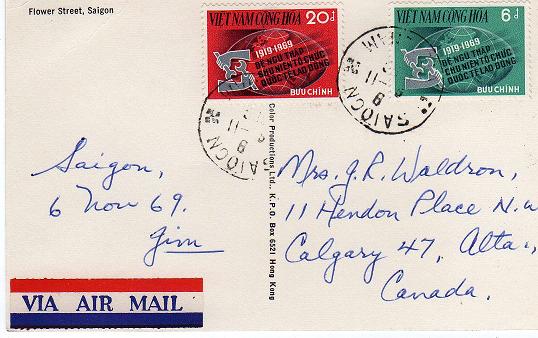 Flower Street, Saigon
VIỆT NAM CỘNG HÒA
20đ
1919-1969
ĐỆ NGŨ THẬP
CHU NIÊN TỔ CHỨC
QUỐC TẾ LAO ĐỘNG
BƯU CHÍNH
VIỆT NAM CỘNG HÒA
6đ
1919-1969
ĐỆ NGŨ THẬP
CHU NIÊN TỔ CHỨC
QUỐC TẾ LAO ĐỘNG
BƯU CHÍNH
SAIGON
SAIGON
Color Productions Ltd., K.P.O. Box 6521 Hong Kong
Saigon,
6 Nov 69.
Jim
Mrs. J. R. Waldron,
11 Hendon Place N.W
Calgary 47, Alta.,
Canada.
VIA AIR MAIL